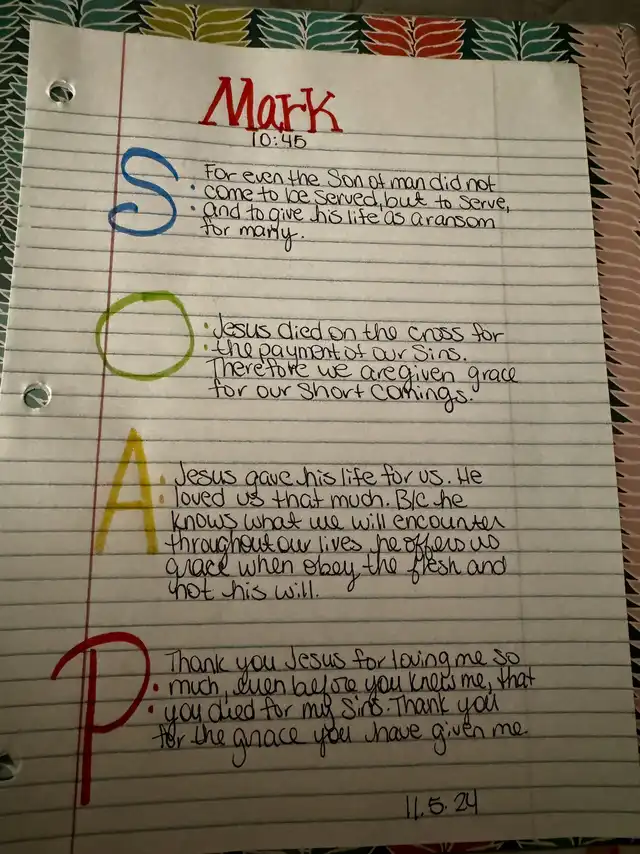 Mark
10:45
S : For even the Son of man did not
come to be served, but to serve,
and to give his life as a ransom
for many.
O : Jesus died on the cross for
the payment of our Sins.
Therefore we are given grace
for our short comings.
A : Jesus gave his life for us. He
loved us that much. B/c he
knows what we will encounter
throughout our lives he offers us
grace when obey the flesh and
not his will.
P : Thank you Jesus for loving me so
much, even before you knew me, that
you died for my sins. Thank you
for the grace you have given me.
11.5.24